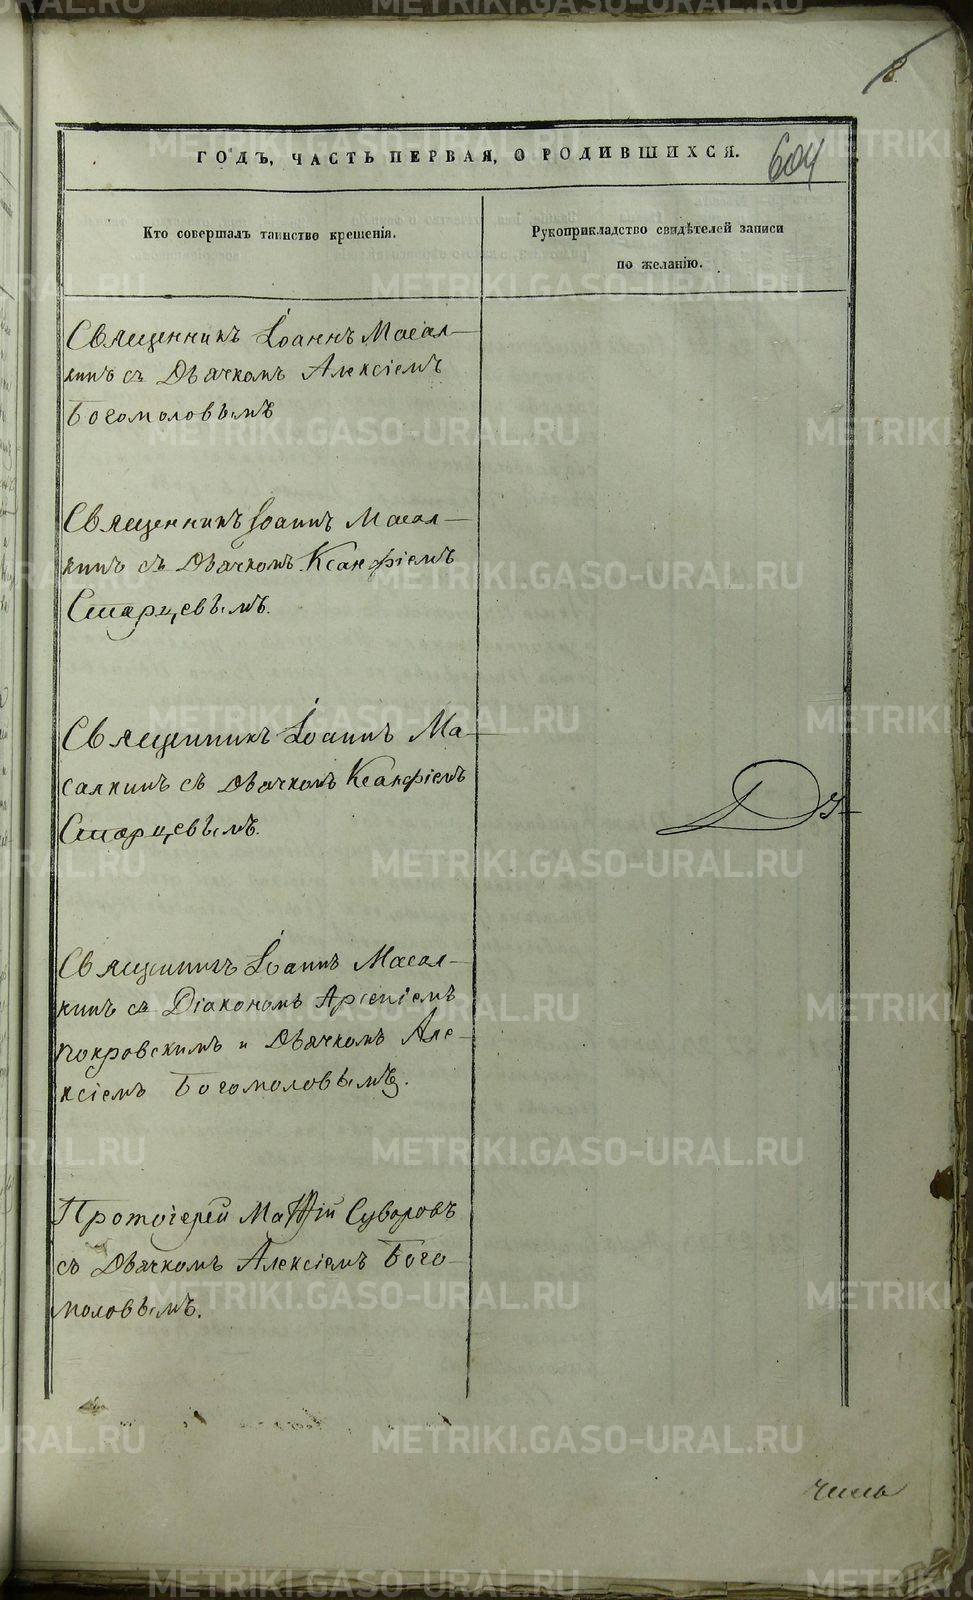 8
ГОДЪ, ЧАСТЬ ПЕРВАЯ, О РОДИВШИХСЯ.
604
Кто совершалъ таинство крещенія.
Рукоприкладство свидѣтелей записи
по желанію.
Священникъ Іоаннъ Масал-
кинъ съ Дьячкомъ Алексіемъ
Богомоловымъ
Священникъ Іоаннъ Масал-
кинъ съ Дьячкомъ Ксанфіемъ
Старцевымъ.
Священникъ Іоаннъ Ма-
салкинъ съ Дьячкомъ Ксанфіемъ
Старцевымъ.
Священникъ Іоаннъ Масал-
кинъ съ Діакономъ Арсеніемъ
Покровскимъ и Дьячкомъ Але-
ксіемъ Богомоловымъ.
Протоіерей Матѳій Суворовъ
съ Дьячкомъ Алексіемъ Бого-
моловымъ.
METRIKI.GASO-URAL.RU